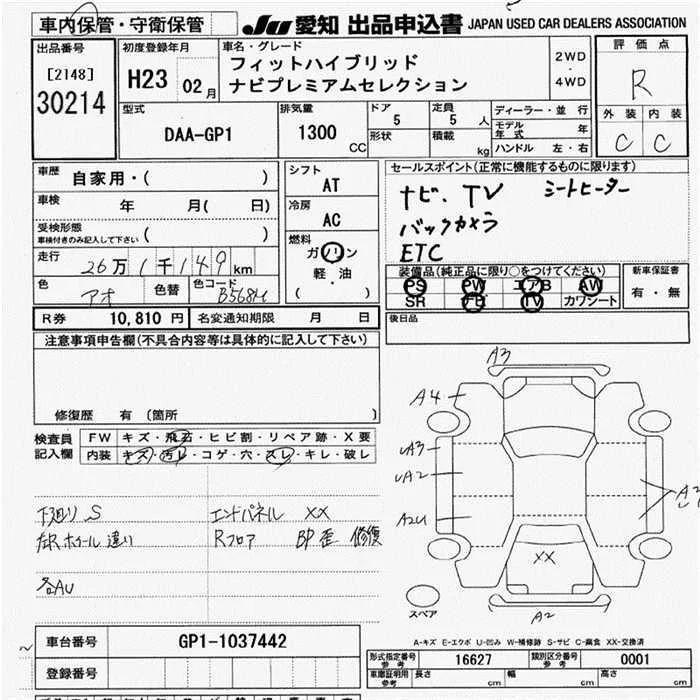 車内保管・守衛保管
JU 愛知 出品申込書 JAPAN USED CAR DEALERS ASSOCIATION
出品番号
[2148]
30214
初度登録年月
H23 02月
車名・グレード
フィットハイブリッド
ナビプレミアムセレクション
2WD
・
4WD
評価点
R
外装 内装
C C
型式
DAA-GP1
排気量
1300 CC
ドア 5
形状
定員 5 人
積載 kg
ディーラー・並行
モデル年式 年
ハンドル 左・右
車歴 自家用・( )
車検 年 月( 日)
受検形態
車検付きのみ記入して下さい ( )
走行 26万1千149km
色 アオ 色替 色コード B568M
シフト
AT
冷房
AC
燃料
ガソリン
軽・油
( )
セールスポイント(正常に機能するものに限ります)
ナビ、TV シートヒーター
バックカメラ
ETC
装備品(純正品に限り○をつけてください)
PS PW エアB AW
SR ナビ TV カワシート
新車保証書
有・無
R券 10,810円 名変通知期限 月 日
後日品
注意事項申告欄(不具合内容等は具体的に記入して下さい)
修復歴 有 (箇所 )
検査員記入欄
FW キズ・飛石・ヒビ割・リペア跡・X要
内装 キズ・汚レ・コゲ・穴・スレ・キレ・破レ
下廻り S エンドパネル XX
左Rホイール違い Rフロア BP歪 修復
各AU
A3
A4
UA3
UA2
A2U
A2
XX
A2
スペア
A-キズ E-エクボ U-凹み W-補修跡 S-サビ C-腐食 XX-交換済
車台番号 GP1-1037442
登録番号
型式指定番号 参考 16627 類別区分番号 参考 0001
車庫証明用 参考 長さ cm 幅 cm 高さ cm